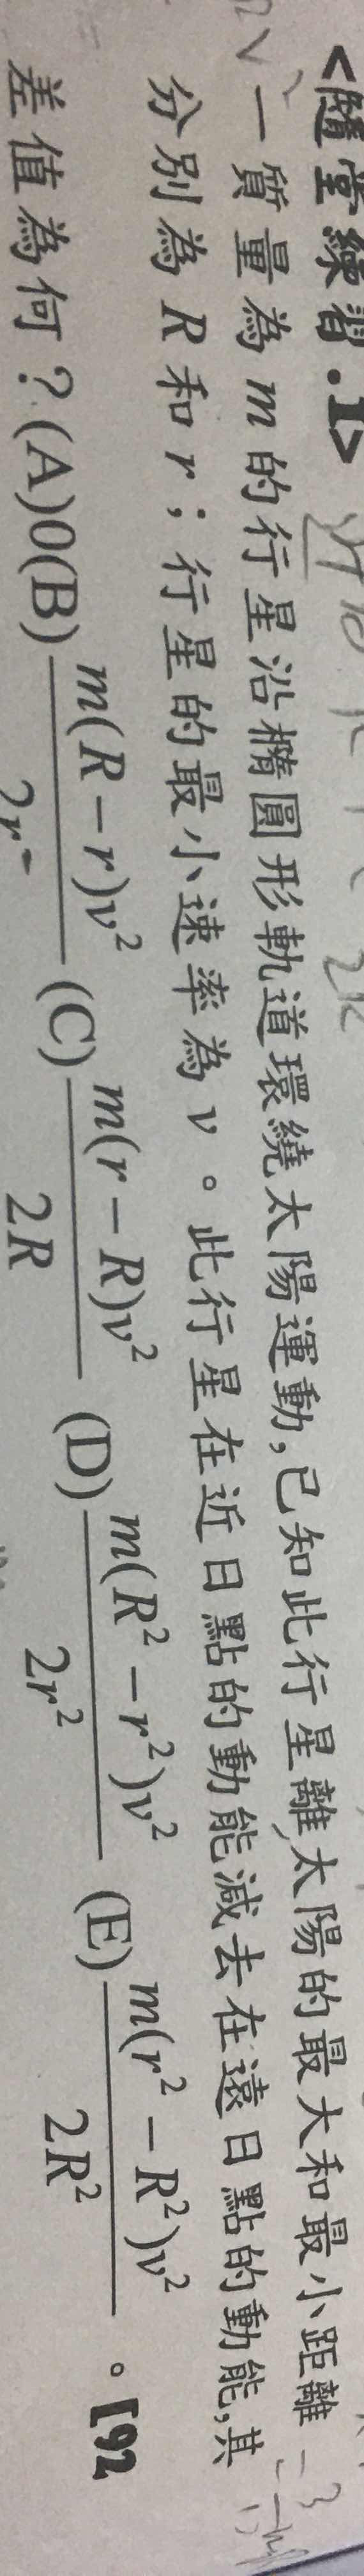 <隨堂練習.1>
一質量為 m 的行星沿橢圓形軌道環繞太陽運動,已知此行星離太陽的最大和最小距離
分別為 R 和 r；行星的最小速率為 v。此行星在近日點的動能減去在遠日點的動能,其
差值為何？(A)0(B)\frac{m(R-r)v^2}{2r}(C)\frac{m(r-R)v^2}{2R}(D)\frac{m(R^2-r^2)v^2}{2r^2}(E)\frac{m(r^2-R^2)v^2}{2R^2}。【92